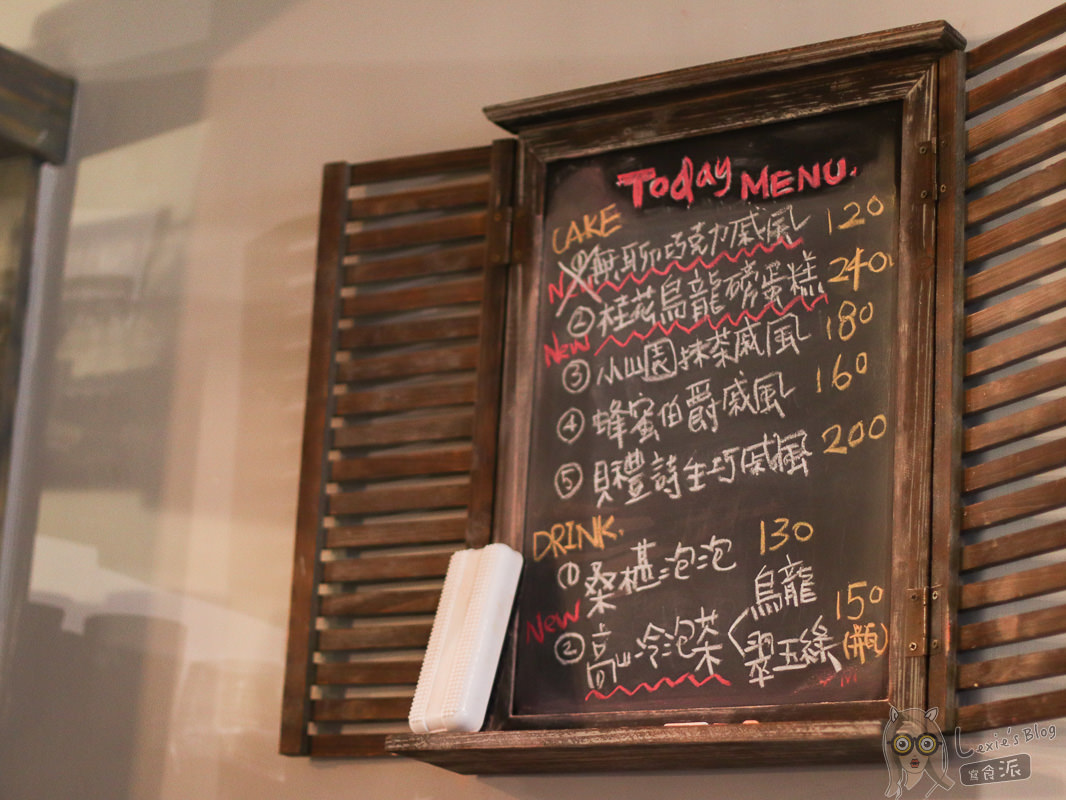 Today MENU.
CAKE
① 無聊巧克力戚風 120
② 桂花烏龍磅蛋糕 240
New
③ 小山園抹茶戚風 180
④ 蜂蜜伯爵戚風 160
⑤ 貝禮詩生巧戚楓 200
DRINK.
① 桑椹泡泡 130
New
② 高山冷泡茶 烏龍 翠玉綠 150 (瓶)
Lexie's Blog
寫食派